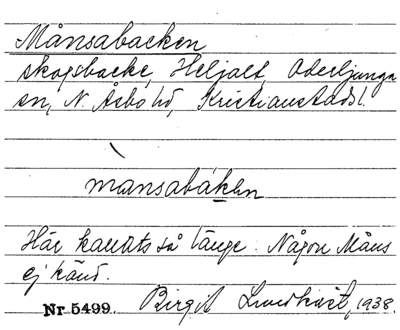 Månsabacken
skogsbacke, Heljalt, Oderljunga
sn, N. Åsbo hd, Kristianstads l.
månsabáken
Här kallats så länge. Någon Måns
ej känd.
Nr 5499. Birgit Lundkvist, 1938.